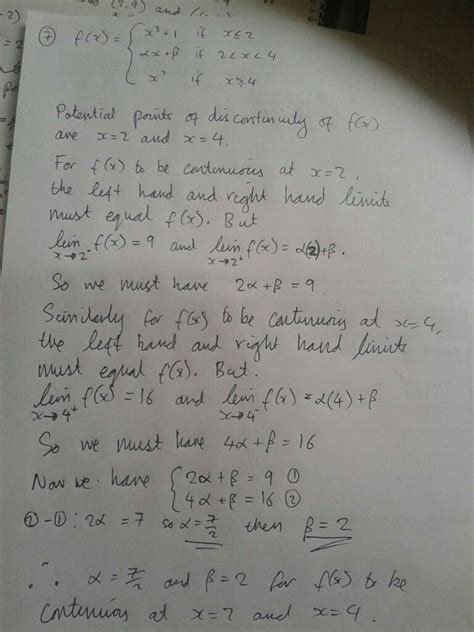 (2,4) and
⑦ f(x) = { x³+1 if x≤2
αx+β if 2<x<4
x² if x≥4
Potential points of discontinuity of f(x)
are x=2 and x=4.
For f(x) to be continuous at x=2,
the left hand and right hand limits
must equal f(x). But
lim x→2⁻ f(x) = 9 and lim x→2⁺ f(x) = α(2)+β.
So we must have 2α+β = 9.
Similarly for f(x) to be continuous at x=4,
the left hand and right hand limits
must equal f(x). But.
lim x→4⁺ f(x) = 16 and lim x→4⁻ f(x) = α(4)+β
So we must have 4α+β = 16
Now we have { 2α+β = 9 ①
4α+β = 16 ②
②-①: 2α = 7 so α = 7/2 then β = 2
∴ α = 7/2 and β = 2 for f(x) to be
continuous at x=2 and x=4.